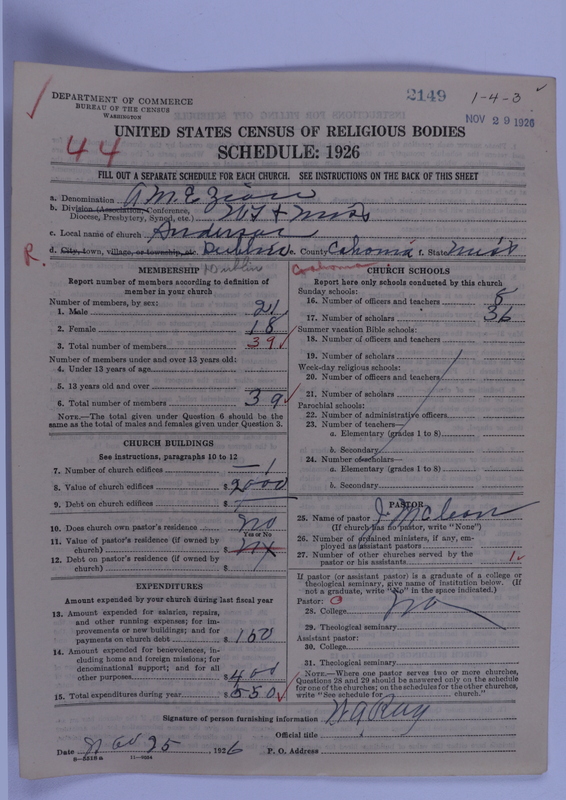 2149
1-4-3
NOV 29 1926
DEPARTMENT OF COMMERCE
BUREAU OF THE CENSUS
WASHINGTON
44
UNITED STATES CENSUS OF RELIGIOUS BODIES
SCHEDULE: 1926
FILL OUT A SEPARATE SCHEDULE FOR EACH CHURCH. SEE INSTRUCTIONS ON THE BACK OF THIS SHEET
a. Denomination A M E Zion
b. Division (Association, Conference,
Diocese, Presbytery, Synod, etc.) & Miss
c. Local name of church Anderson
R. d. City, town, village, or township, etc. Dublin e. County Cahoma f. State Miss
Dublin Coahoma
MEMBERSHIP
Report number of members according to definition of
member in your church
Number of members, by sex:
1. Male 21
2. Female 18
3. Total number of members 39
Number of members under and over 13 years old:
4. Under 13 years of age
5. 13 years old and over
6. Total number of members 39
NOTE.—The total given under Question 6 should be the
same as the total of males and females given under Question 3.
CHURCH BUILDINGS
See instructions, paragraphs 10 to 12
7. Number of church edifices 1
8. Value of church edifices $ 2000
9. Debt on church edifices $
10. Does church own pastor's residence no
Yes or No
11. Value of pastor's residence (if owned by
church) $
12. Debt on pastor's residence (if owned by
church) $
EXPENDITURES
Amount expended by your church during last fiscal year
13. Amount expended for salaries, repairs,
and other running expenses; for im-
provements or new buildings; and for
payments on church debt $ 150
14. Amount expended for benevolences, in-
cluding home and foreign missions; for
denominational support; and for all
other purposes $ 400
15. Total expenditures during year $ 550
CHURCH SCHOOLS
Report here only schools conducted by this church
Sunday schools:
16. Number of officers and teachers 5
17. Number of scholars 36
Summer vacation Bible schools:
18. Number of officers and teachers
19. Number of scholars
Week-day religious schools:
20. Number of officers and teachers
21. Number of scholars
Parochial schools:
22. Number of administrative officers
23. Number of teachers—
a. Elementary (grades 1 to 8)
b. Secondary
24. Number of scholars—
a. Elementary (grades 1 to 8)
b. Secondary
PASTOR
25. Name of pastor J McLeon
(If church has no pastor, write "None")
26. Number of ordained ministers, if any, em-
ployed as assistant pastors
27. Number of other churches served by the
pastor or his assistants 1
If pastor (or assistant pastor) is a graduate of a college or
theological seminary, give name of institution below. (If
not a graduate, write "No" in the space indicated.)
Pastor: O
28. College No
29. Theological seminary
Assistant pastor:
30. College
31. Theological seminary
NOTE.—Where one pastor serves two or more churches,
Questions 28 and 29 should be answered only on the schedule
for one of the churches; on the schedules for the other churches,
write "See schedule for church."
Signature of person furnishing information Ray
Official title
Date Nov 25, 1926 P. O. Address
8-5518 a 11-9034